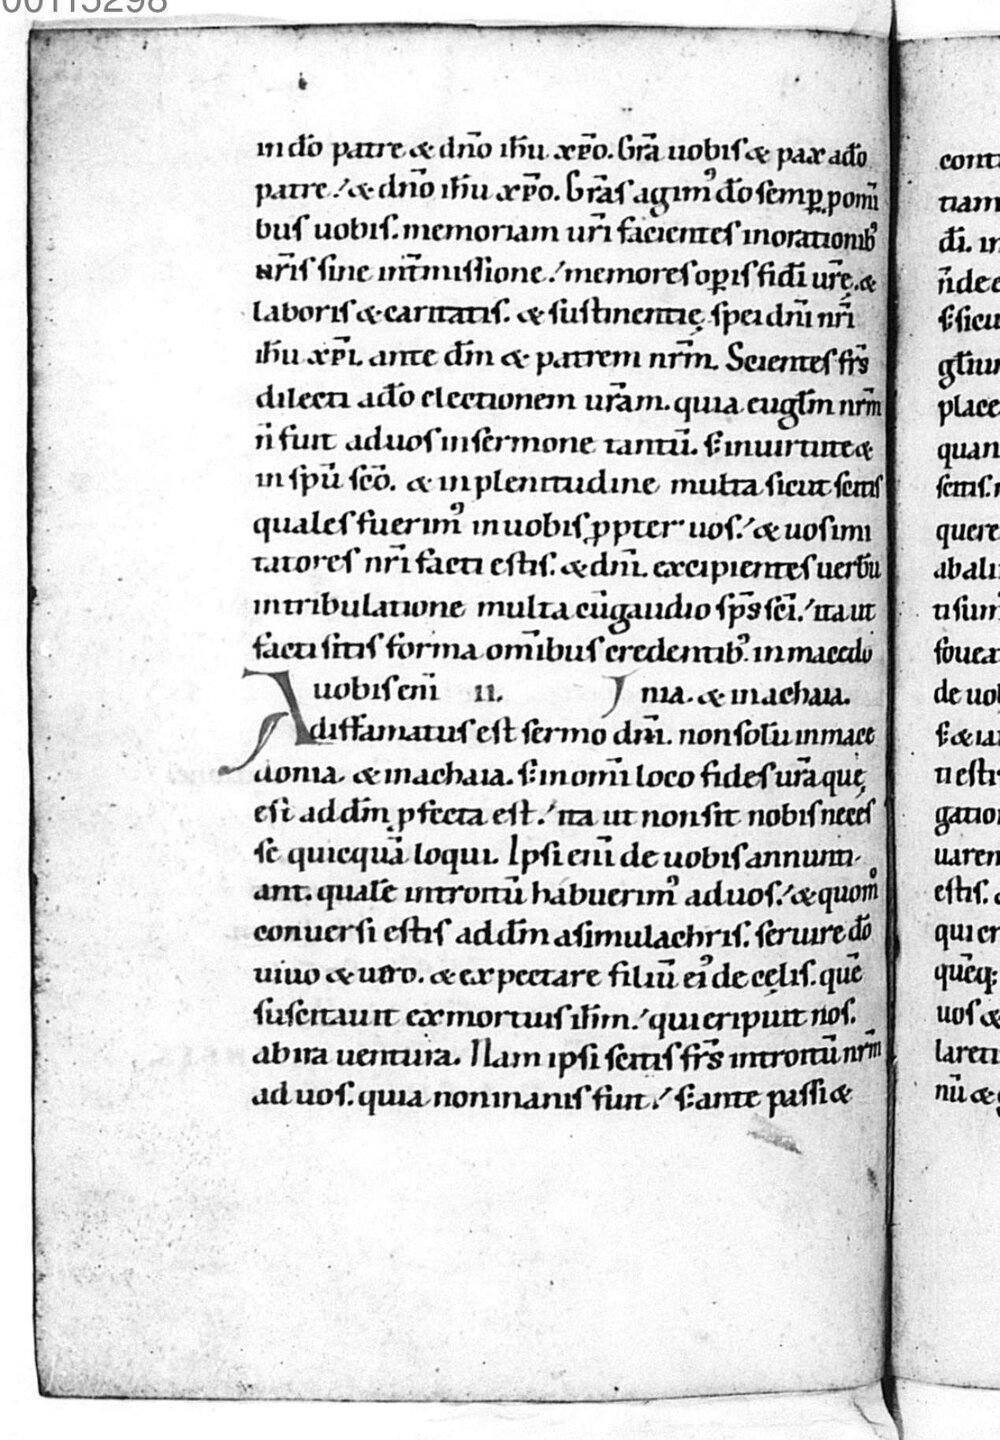 00115298
in do̅ patre & dn̅o ih̅u xp̅o. Gr̅a uobis & pax a do̅
patre. & dn̅o ih̅u xp̅o. Gr̅as agim᷒ do̅ semp̲ p omni
bus uobis. memoriam ur̅i facientes in orationib᷒
nr̅is sine int̅missione. memores op̲is fid̅i ur̅ę. &
laboris & caritatis. & sustinentię spei dn̅i nr̅i
ih̅u xp̅i. ante dm̅ & patrem nr̅m. Scientes fr̅s
dilecti a do̅ electionem ur̅am. quia eugl̅m nr̅m
n̅ fuit ad uos in sermone tantu̅. s; in uirtute &
in sp̅u sco̅. & in plenitudine multa sicut scitis
quales fuerim᷒ in uobis ppter uos. & uos imi
tatores nr̅i facti estis. & dn̅i. excipientes uerbu̅
in tribulatione multa cu̅ gaudio sp̅s sc̅i. ita ut
facti sitis forma om̅ibus credentib᷒. in macedo
A uobis eni̅ II. nia. & in achaia.
diffamatus est sermo dn̅i. non solu̅ in mace
donia. & in achaia. s; in omi̅ loco fides ur̅a quę
est ad dm̅ p̲fecta est. ita ut non sit nobis neces
se quicqua̅ loqui. Ipsi eni̅ de uobis annunti
ant. quale̅ introitu̅ habuerim᷒ ad uos. & quom̊
conuersi estis ad dm̅ a simulachris. seruire do̅
uiuo & uero. & expectare filiu̅ ei᷒ de cęlis. que̅
suscitauit ex mortuis ih̅m. qui eripuit nos.
ab ira uentura. Nam ipsi scitis fr̅s introitu̅ nr̅m
ad uos. quia non inanis fuit. s; ante passi &